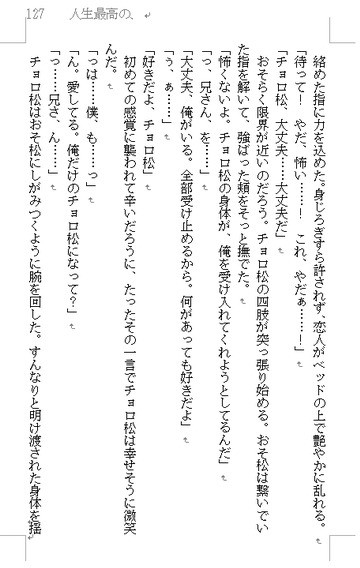 127　人生最高の、
絡めた指に力を込めた。身じろぎすら許されず、恋人がベッドの上で艶やかに乱れる。
「待って！　やだ、怖い……！　これ、やだぁ……！」
「チョロ松、大丈夫……大丈夫だ」
おそらく限界が近いのだろう。チョロ松の四肢が突っ張り始める。おそ松は繋いでい
た指を解いて、強ばった頬をそっと撫でた。
「怖くないよ。チョロ松の身体が、俺を受け入れてくれようとしてるんだ」
「っ、兄さん、を……」
「大丈夫、俺がいる。全部受け止めるから。何があっても好きだよ」
「ぅ、ぁ……」
「好きだよ、チョロ松」
初めての感覚に襲われて辛いだろうに、たったその一言でチョロ松は幸せそうに微笑
んだ。
「っは……僕、も……っ」
「ん。愛してる。俺だけのチョロ松になって？」
「っ……兄さ、ん……」
チョロ松はおそ松にしがみつくように腕を回した。すんなりと明け渡された身体を揺